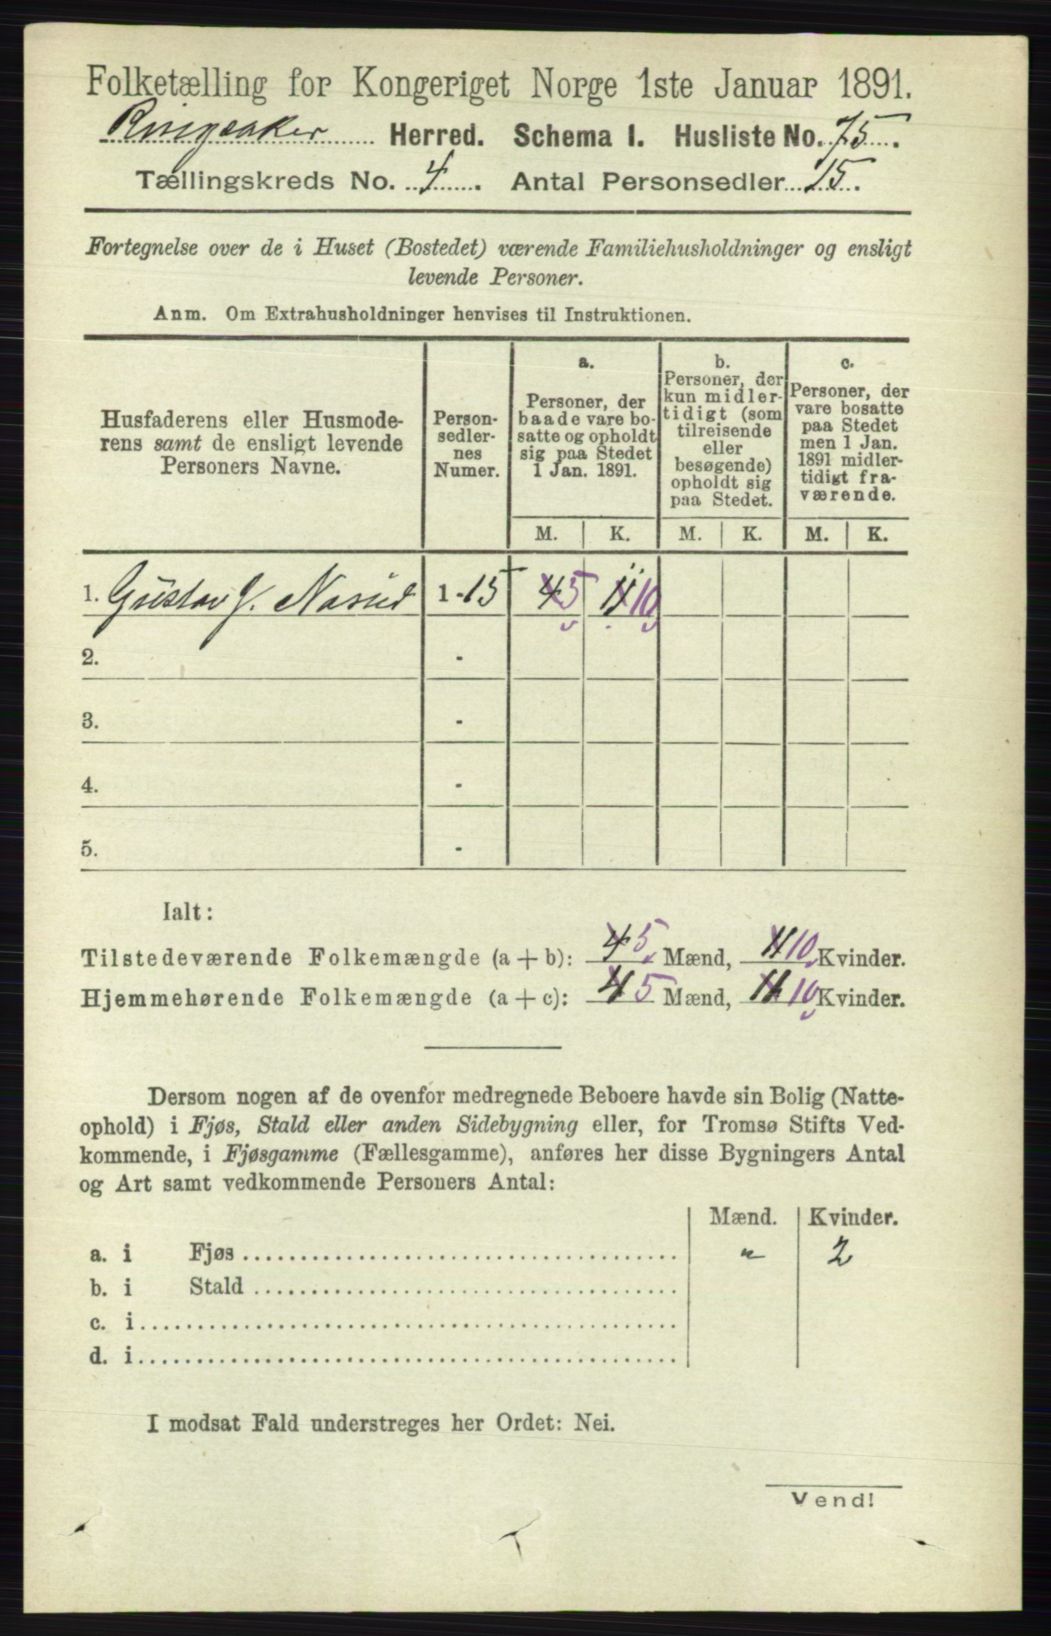 Folketælling for Kongeriget Norge 1ste Januar 1891.
Ringsaker Herred. Schema I. Husliste No. 75.
Tællingskreds No. 4. Antal Personsedler 15.
Fortegnelse over de i Huset (Bostedet) værende Familiehusholdninger og ensligt
levende Personer.
Anm. Om Extrahusholdninger henvises til Instruktionen.
Husfaderens eller Husmode-
rens samt de ensligt levende
Personers Navne.
Person-
sedler-
nes
Numer.
a.
Personer, der
baade vare bo-
satte og opholdt
sig paa Stedet
1 Jan. 1891.
b.
Personer, der
kun midler-
tidigt (som
tilreisende
eller
besøgende)
opholdt sig
paa Stedet.
c.
Personer, der
vare bosatte
paa Stedet
men 1 Jan.
1891 midler-
tidigt fra-
værende.
M. K. M. K. M. K.
1. Gustav J. Nasrud 1-15 4 5 11 10
2. -
3. -
4. -
5. -
Ialt:
Tilstedeværende Folkemængde (a + b): 4 5 Mænd, 11 10 Kvinder.
Hjemmehørende Folkemængde (a + c): 4 5 Mænd, 11 10 Kvinder.
Dersom nogen af de ovenfor medregnede Beboere havde sin Bolig (Natte-
ophold) i Fjøs, Stald eller anden Sidebygning eller, for Tromsø Stifts Ved-
kommende, i Fjøsgamme (Fællesgamme), anføres her disse Bygningers Antal
og Art samt vedkommende Personers Antal:
Mænd. Kvinder.
a. i Fjøs " 2
b. i Stald
c. i
d. i
I modsat Fald understreges her Ordet: Nei.
Vend!